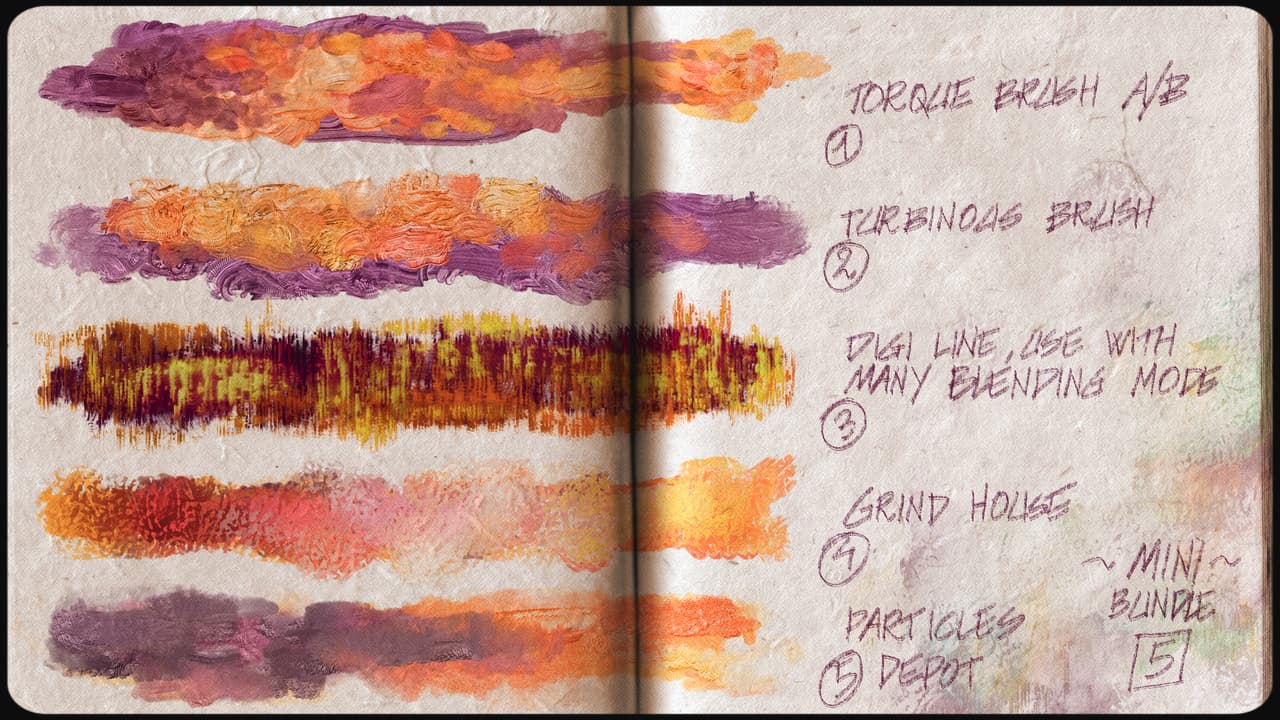 TORQUE BRUSH A/B
1
TURBINOUS BRUSH
2
DIGI LINE, USE WITH
MANY BLENDING MODE
3
GRIND HOUSE
4
PARTICLES
5 DEPOT
~ MINI ~
BUNDLE
5